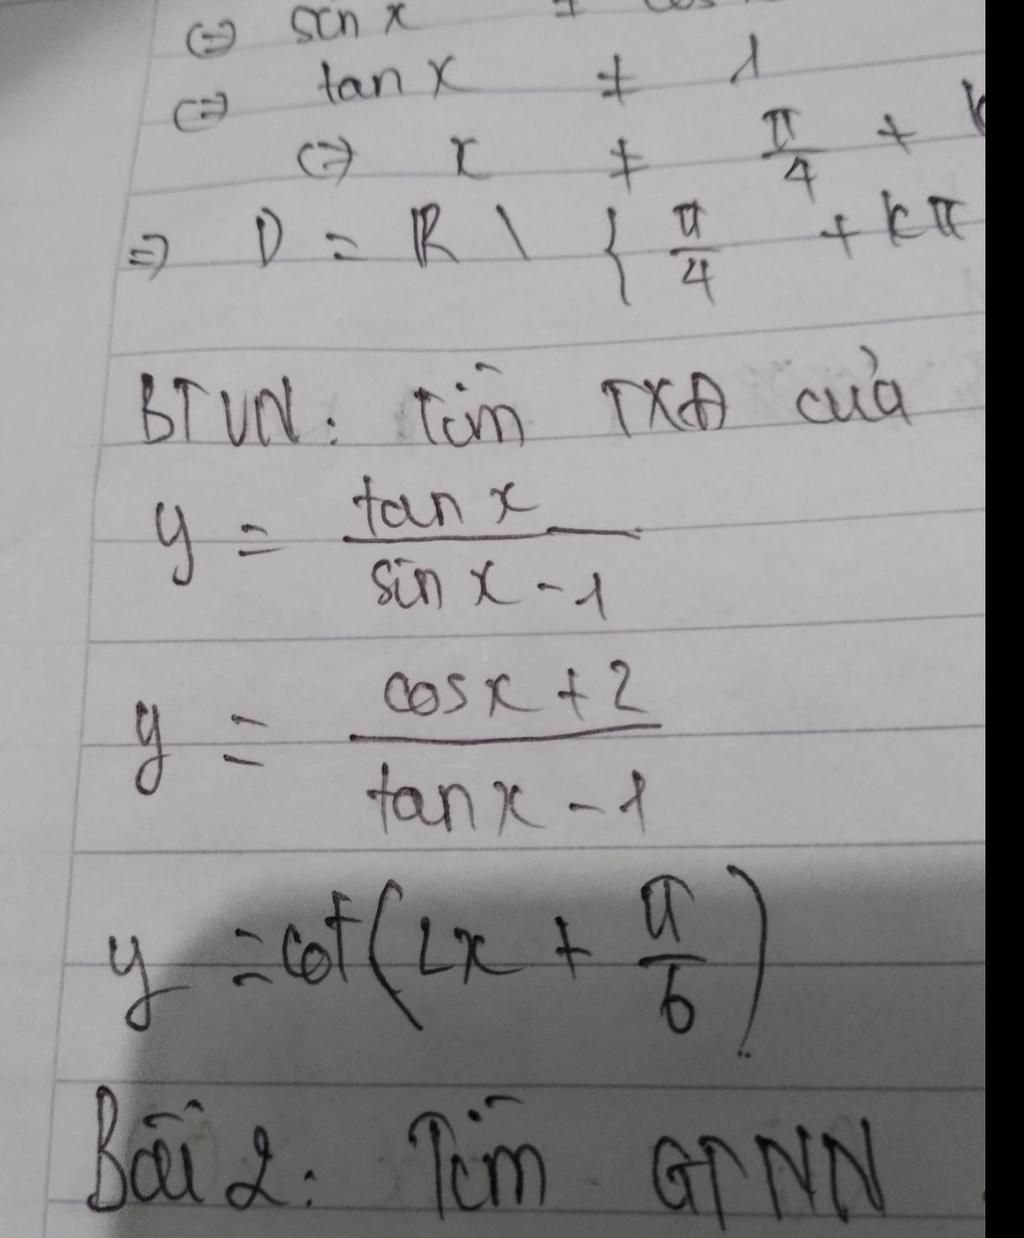 ⇔ sin x ≠ cos
⇔ tan x ≠ 1
⇔ x ≠ π/4 + k
⇒ D = ℝ \ { π/4 + kπ
BTVN: Tìm TXĐ của
y = tan x / sin x - 1
y = cos x + 2 / tan x - 1
y = cot(2x + π/6)
Bài 2: Tìm GTNN